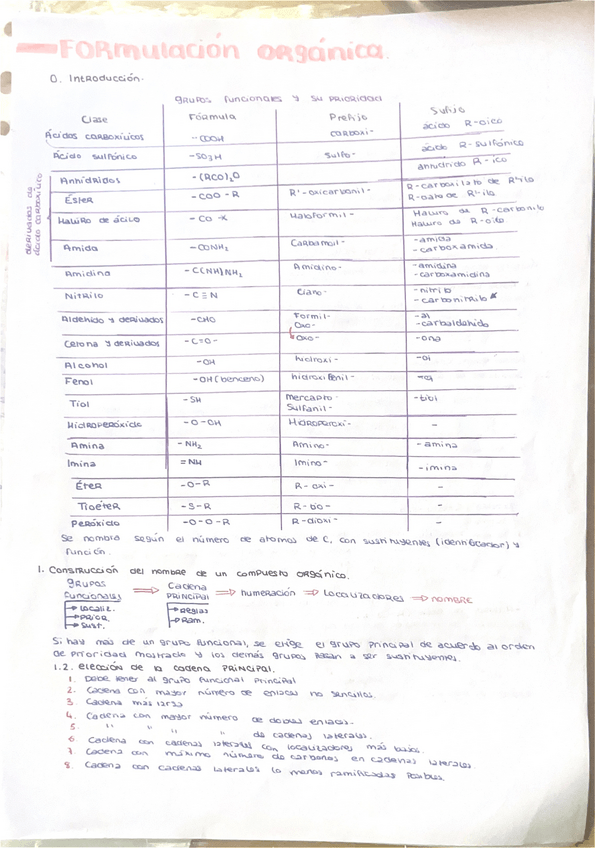 Formulación orgánica.
0. Introducción.
Grupos funcionales y su prioridad
Clase Fórmula Prefijo Sufijo
Ácidos carboxílicos -COOH carboxi- ácido R-oico
Ácido sulfónico -SO3H Sulfo- ácido R-sulfónico
derivados de ácido carboxílico
Anhídridos -(RCO)2O anhídrido R-ico
Éster -COO-R R'-oxicarbonil- R-carboxilato de R'-ilo
R-oato de R'-ilo
Haluro de ácilo -CO-X Haloformil- Haluro de R-carbonilo
Haluro de R-oilo
Amida -CONH2 Carbamoil- -amida
-carboxamida
Amidina -C(NH)NH2 Amidino- -amidina
-carboxamidina
Nitrilo -C≡N Ciano- -nitrilo
-carbonitrilo
Aldehído y derivados -CHO Formil- -al
Oxo- -carbaldehído
Cetona y derivados -C=O- Oxo- -ona
Alcohol -OH hidroxi- -ol
Fenol -OH (benceno) hidroxifenil- -ol
Tiol -SH mercapto- -tiol
Sulfanil-
Hidroperóxido -O-OH Hidroperoxi- -
Amina -NH2 Amino- -amina
Imina =NH Imino- -imina
Éter -O-R R-oxi- -
Tioéter -S-R R-tio- -
Peróxido -O-O-R R-dioxi- -
Se nombra según el número de átomos de C, con sustituyentes (identificador) y
función.
1. Construcción del nombre de un compuesto orgánico.
Grupos funcionales ⇒ Cadena principal ⇒ numeración ⇒ Localizadores ⇒ nombre
→ Localiz. → Reglas
→ Prior. → Ram.
→ Sust.
Si hay más de un grupo funcional, se elige el grupo principal de acuerdo al orden
de prioridad mostrado y los demás grupos pasan a ser sustituyentes.
1.2. elección de la cadena principal.
1. Debe tener al grupo funcional principal
2. Cadena con mayor número de enlaces no sencillos.
3. Cadena más larga
4. Cadena con mayor número de dobles enlaces.
5. " " " " de cadenas laterales.
6. Cadena con cadenas laterales con localizadores más bajos.
7. Cadena con máximo número de carbonos en cadenas laterales
8. Cadena con cadenas laterales lo menos ramificadas posibles.